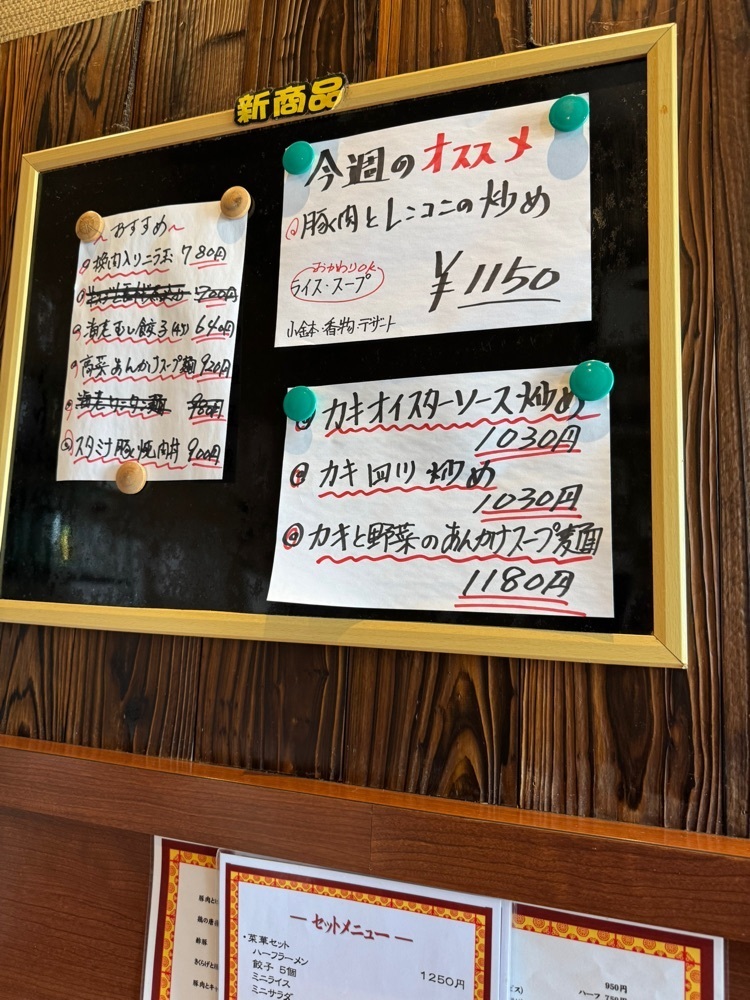 新商品
おすすめ
挽肉入りニラ玉 780円
700円
海老蒸し餃子(4ヶ) 640円
高菜あんかけスープ麺 920円
海老ワンタン麺 980円
スタミナ豚焼肉丼 900円
今週のオススメ
豚肉とレンコンの炒め
おかわりOK
ライス・スープ
¥1150
小鉢・香物・デザート
カキオイスターソース炒め
1030円
カキ四川炒め
1030円
カキと野菜のあんかけスープ麺
1180円
豚肉と
鶏の唐
酢豚
きくらげと
豚肉とキャ
— セットメニュー —
・菜華セット
ハーフラーメン
餃子 5個
1250円
ミニライス
ミニサラダ
950円
ハーフ 750円